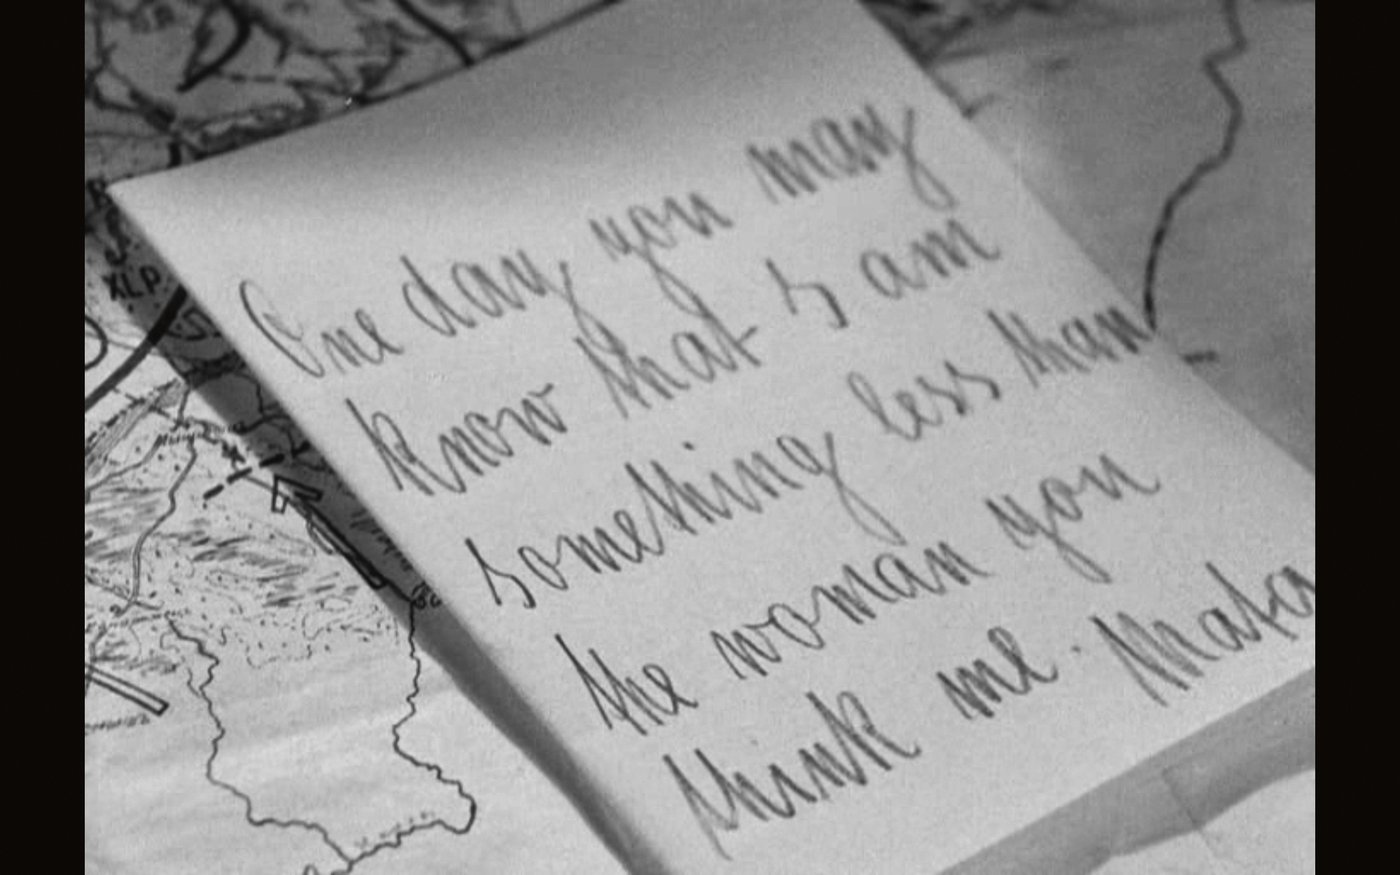 One day you may
know that I am
something less than
the woman you
think me. Mata
XLP